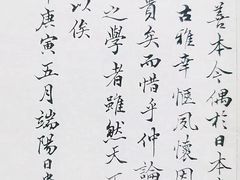 善本今偶於日本
古雅幸惬風懷因
貴矣而惜乎仲論
之學者雖然天
以俟
庚寅五月端陽日